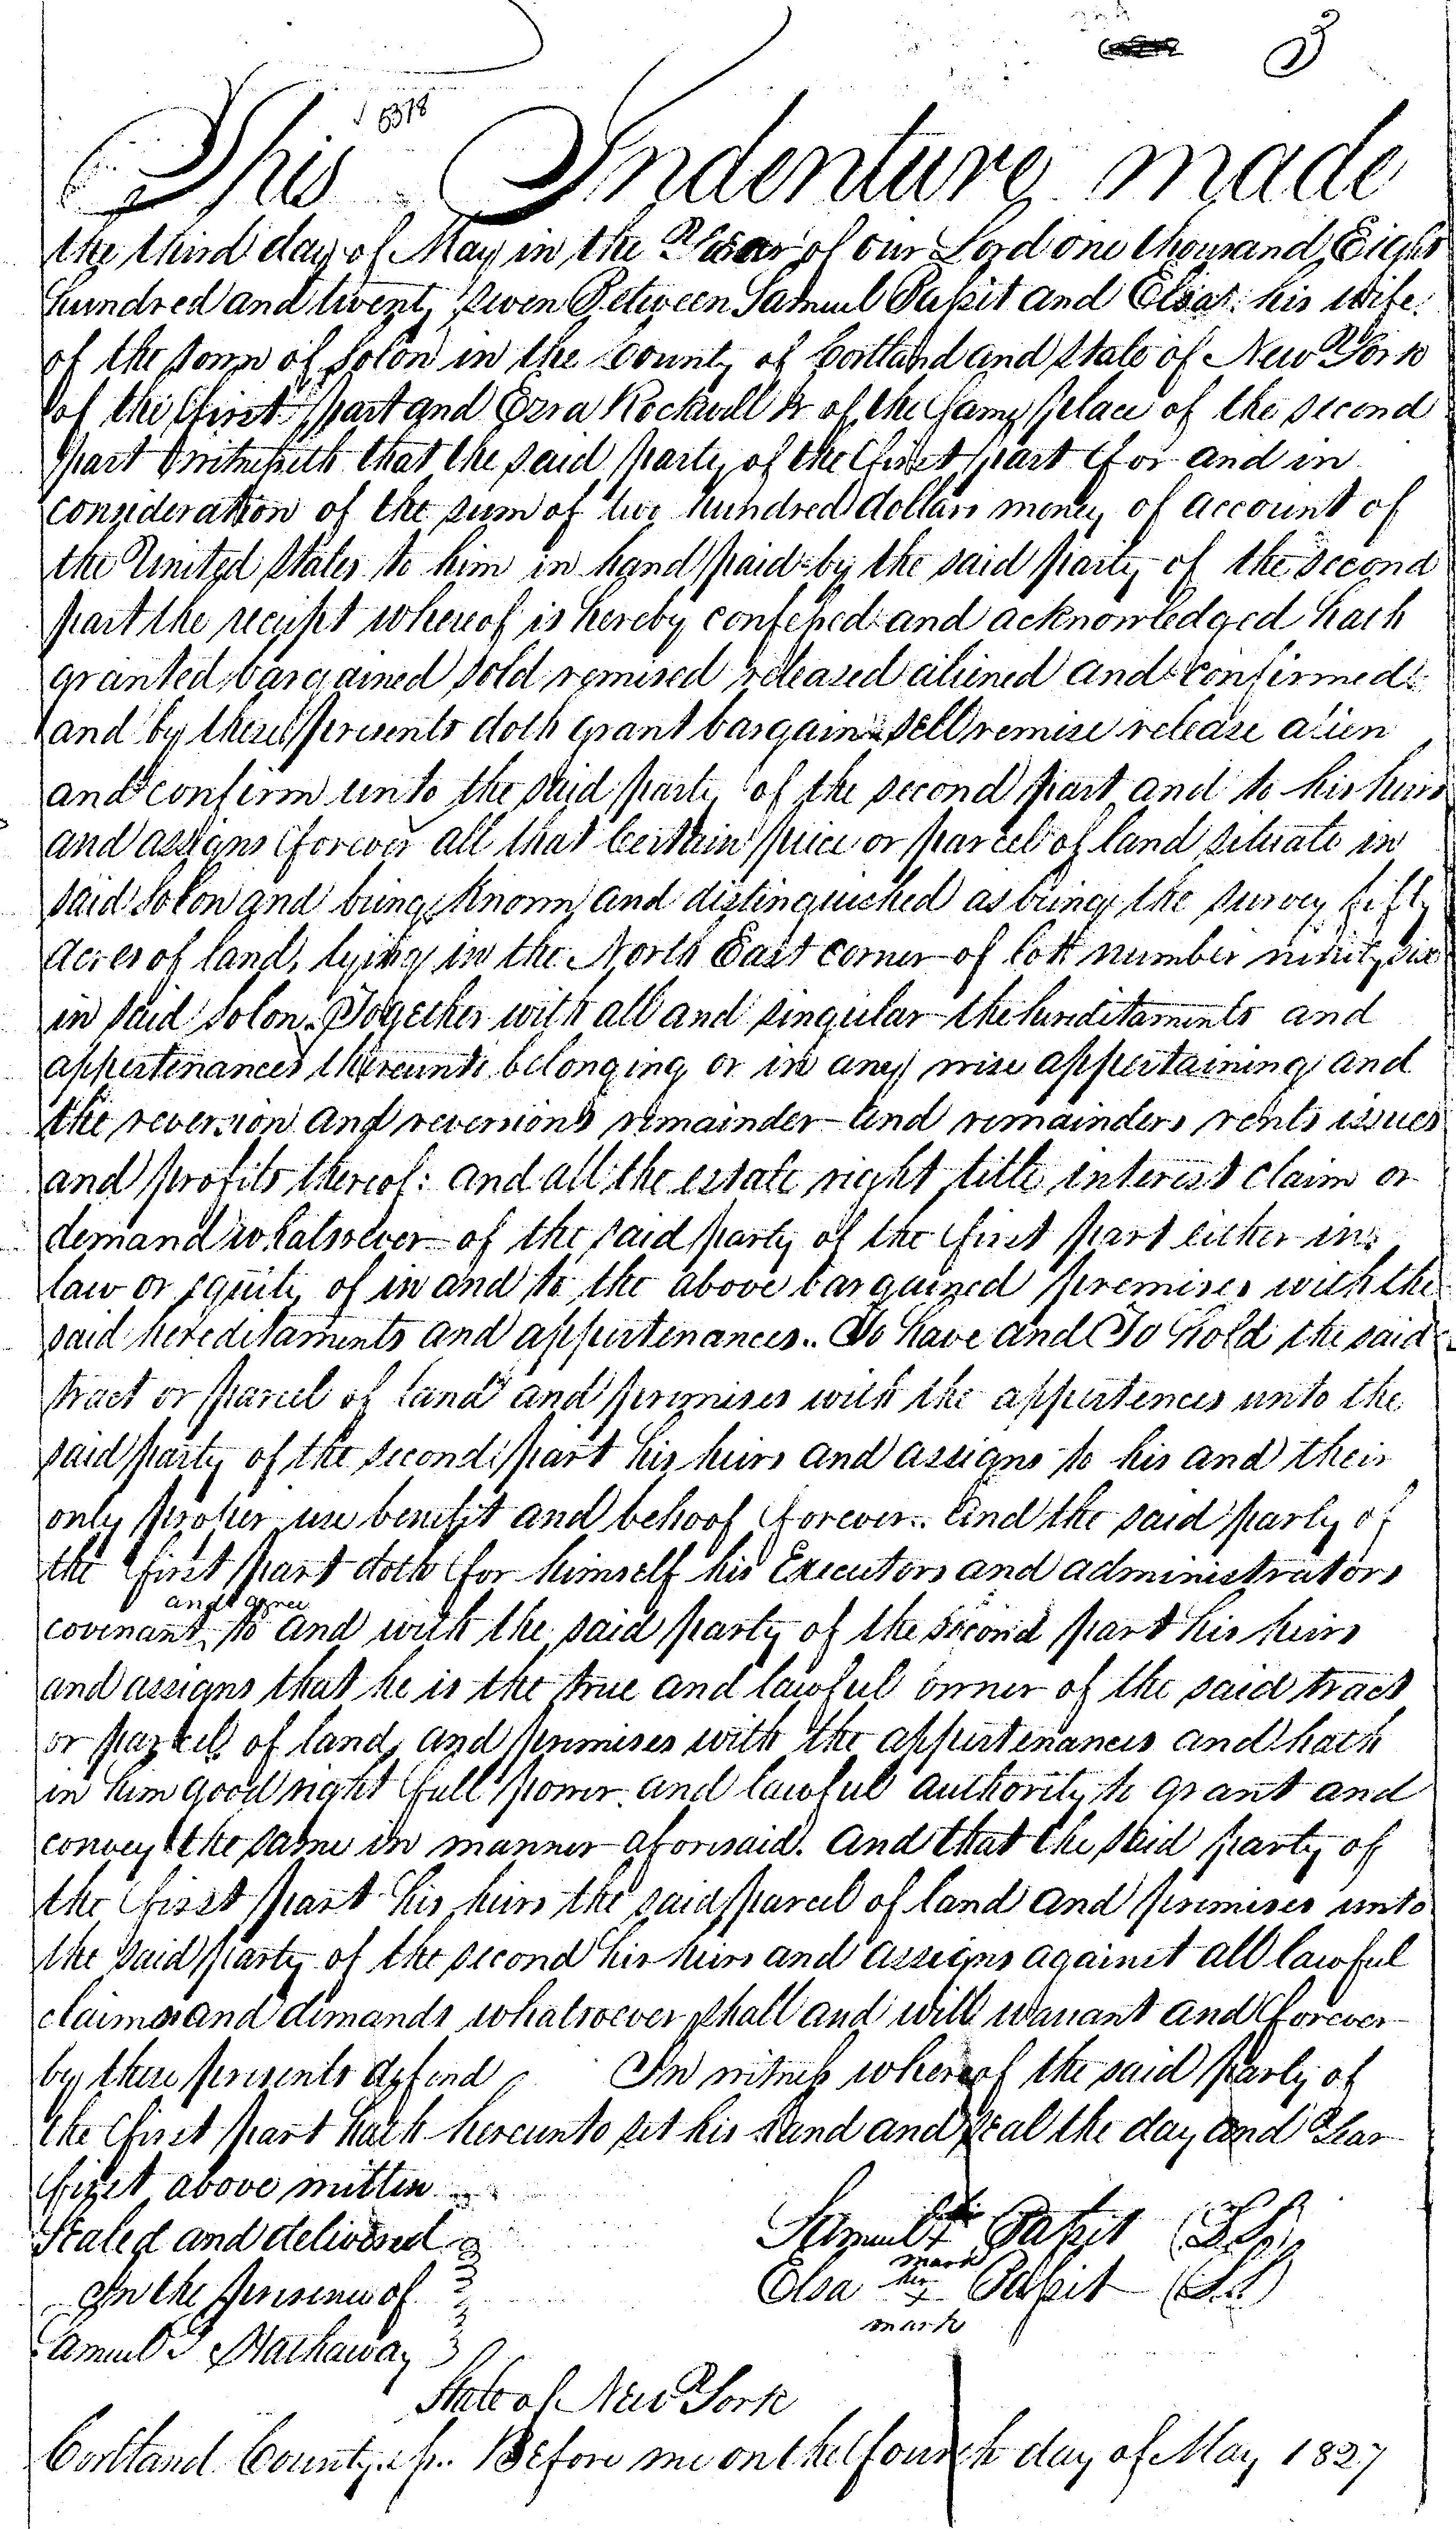 3
5378
This Indenture made
the third day of May in the Year of our Lord one thousand Eight
hundred and twenty seven Between Samuel and his wife
of the town of Solon in the County of Cortland and state of New York
of the first part and Ezra Rockwell Jr of the same place of the second
part Witnesseth that the said party of the first part for and in
consideration of the sum of two hundred dollars money of account of
the United States to him in hand paid by the said party of the second
part the receipt whereof is hereby confessed and acknowledged hath
granted bargained sold remised released aliened and confirmed
and by these presents doth grant bargain sell remise release alien
and confirm unto the said party of the second part and to his heirs
and assigns forever all that certain piece or parcel of land situate in
said Solon and being known and distinguished as being the survey fifty
acres of land, lying in the North East corner of lott number ninety six
in said Solon. Together with all and singular the hereditaments and
appertenances thereunto belonging or in any wise appertaining and
the reversion and reversions remainder and remainders rents issues
and profits thereof: and all the estate right title interest claim or
demand whatsoever of the said party of the first part either in
law or equity of in and to the above bargained premises with the
said hereditaments and appertenances.. To have and To hold the said
tract or parcel of land and premises with the appertences unto the
said party of the second part his heirs and assigns to his and their
only proper use benefit and behoof forever.. And the said party of
the first part doth for himself his Executors and administrators
and agree
covenant to and with the said party of the second part his heirs
and assigns that he is the true and lawful owner of the said tract
or parcel of land, and premises with the appertenances and hath
in him good right full power and lawful authority to grant and
convey the same in manner aforesaid. And that the said party of
the first part his heirs the said parcel of land and premises unto
the said party of the second his heirs and assigns against all lawful
claims and demands whatsoever shall and will warrant and forever
by these presents defend In witness whereof the said party of
the first part hath hereunto set his hand and seal the day and Year
first above written
Sealed and delivered Samuel + (LS)
mark
In the presence of Elsa her + (LS)
mark
Samuel G Hathaway
State of New York
Cortland County ss. Before me on the fourth day of May 1827